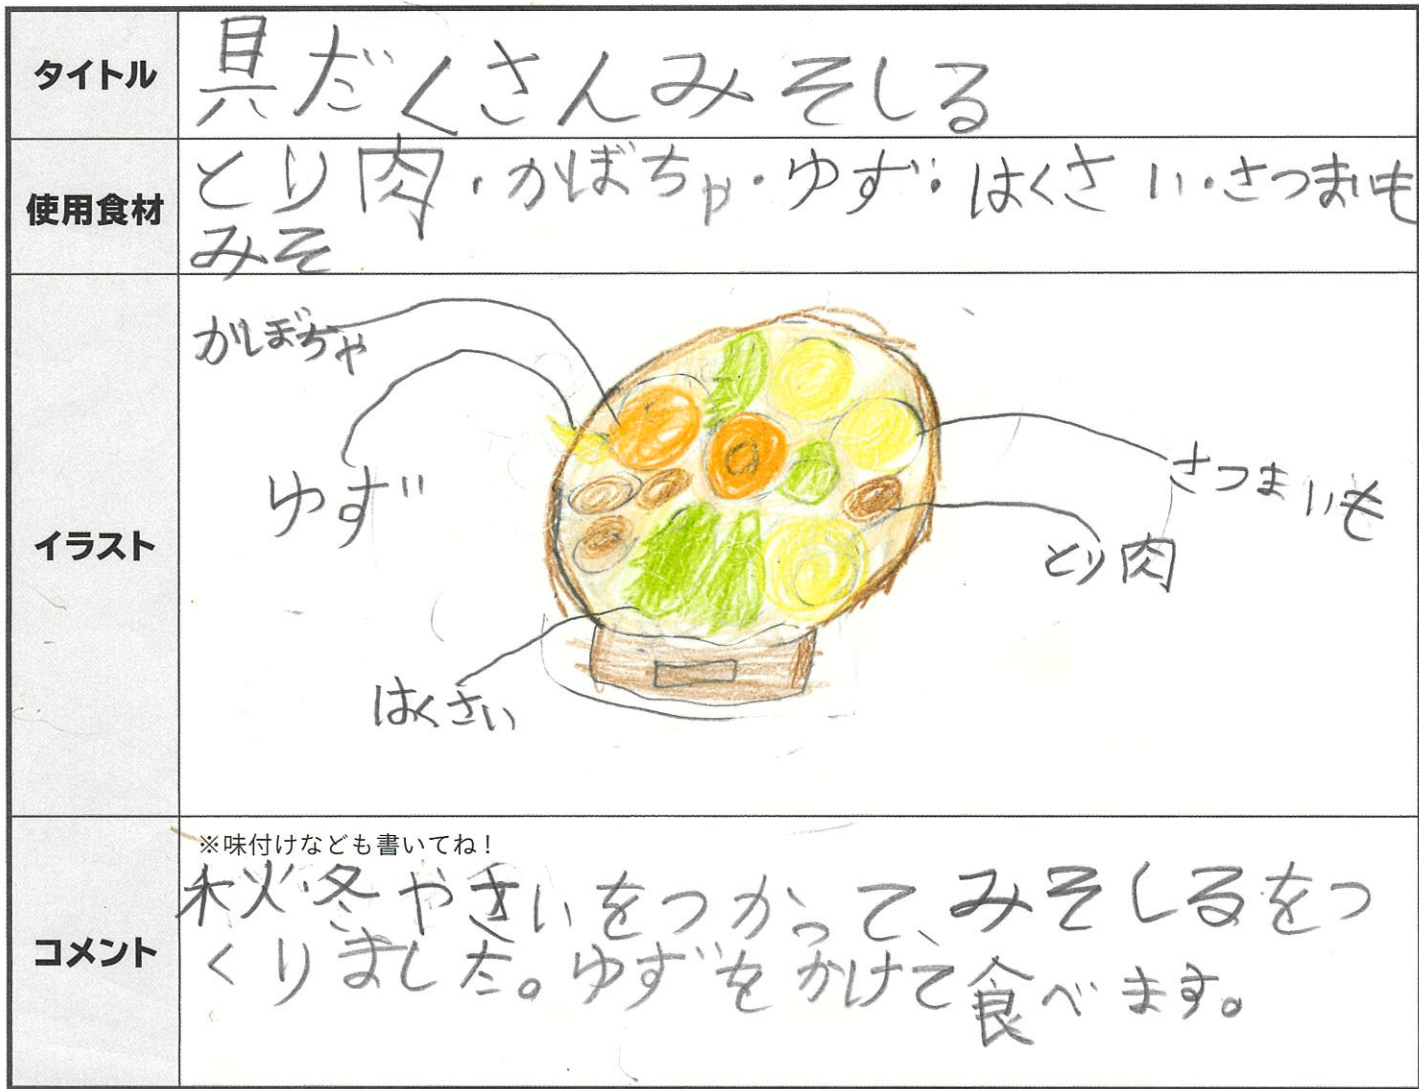 タイトル
具だくさんみそしる
使用食材
とり肉・かぼちゃ・ゆず・はくさい・さつまいも
みそ
イラスト
かぼちゃ
ゆず
さつまいも
とり肉
はくさい
コメント
※味付けなども書いてね！
秋冬やさいをつかって、みそしるをつ
くりました。ゆずをかけて食べます。